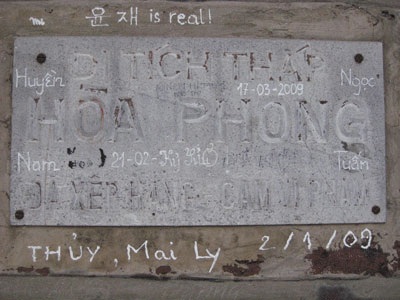 윤재 is real!
DI TÍCH THÁP
Huyền Ngọc
17-03-2009
HÒA PHONG
Nam 21-02- Tuấn
ĐÃ XẾP HẠNG CẤM VI PHẠM
THỦY, Mai Ly 2/1/09